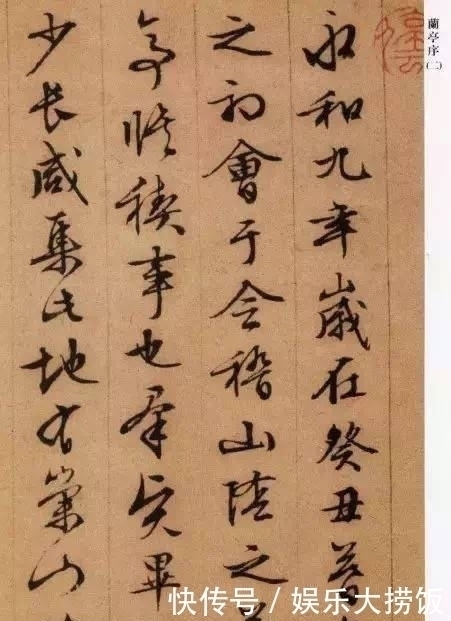 蘭亭序(二)
永和九年歲在癸丑暮
之初會于会稽山陰之
亭脩稧事也群賢畢
少長咸集此地有崇山
快传号/娱乐大捞饭